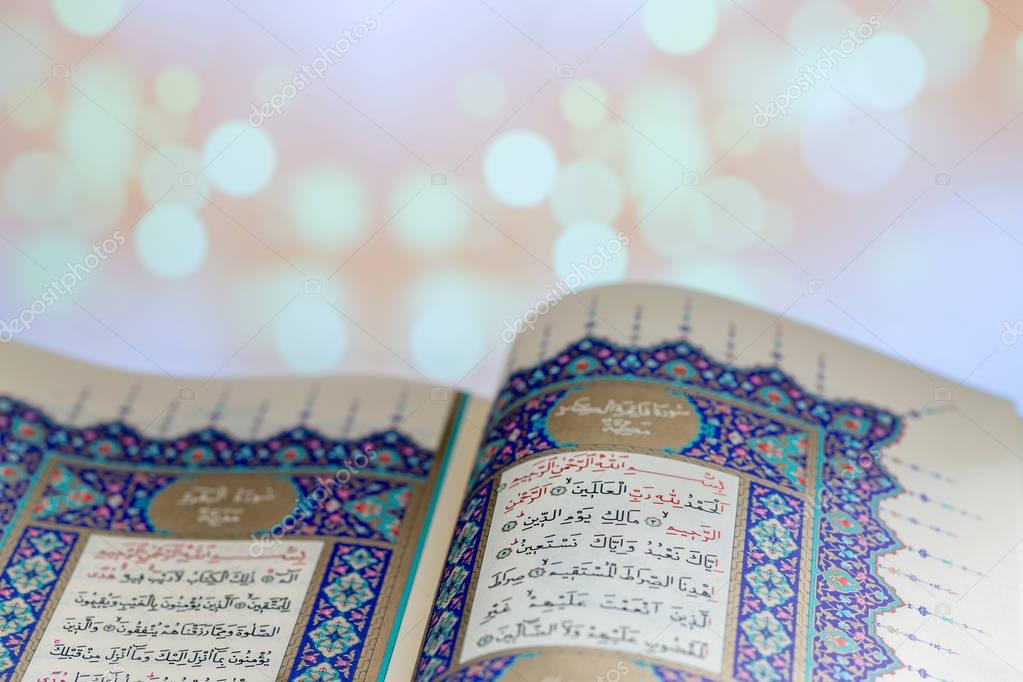 سورة فاتحة الكتاب
مكية
بسم الله الرحمن الرحيم
الحمد لله رب العالمين ۝١ الرحمن
الرحيم ۝٢ مالك يوم الدين ۝٣
اياك نعبد واياك نستعين ۝٤
اهدنا الصراط المستقيم ۝٥ صراط
الذين انعمت عليهم ۝٦ غير
المغضوب عليهم ولا الضالين ۝٧
سورة البقرة
مدنية
بسم الله الرحمن الرحيم
الم ۝١ ذلك الكتاب لا ريب فيه هدى
للمتقين ۝٢ الذين يؤمنون بالغيب ويقيمون
الصلوة ومما رزقناهم ينفقون ۝٣ والذين
يؤمنون بما انزل اليك وما انزل من قبلك
depositphotos
depositphotos
depositphotos
depositphotos
depositphotos